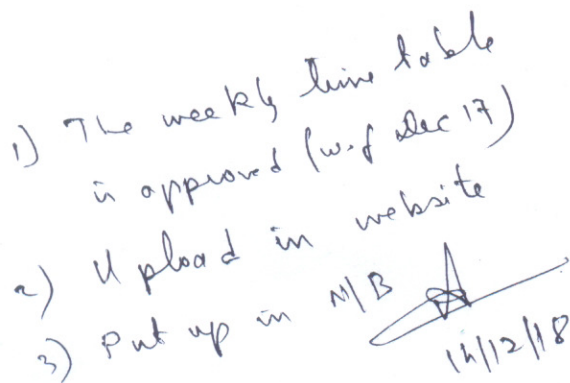 1) The weekly time table
is approved (w.f Dec 17)
2) Upload in website
3) Put up in N/B
14/12/18